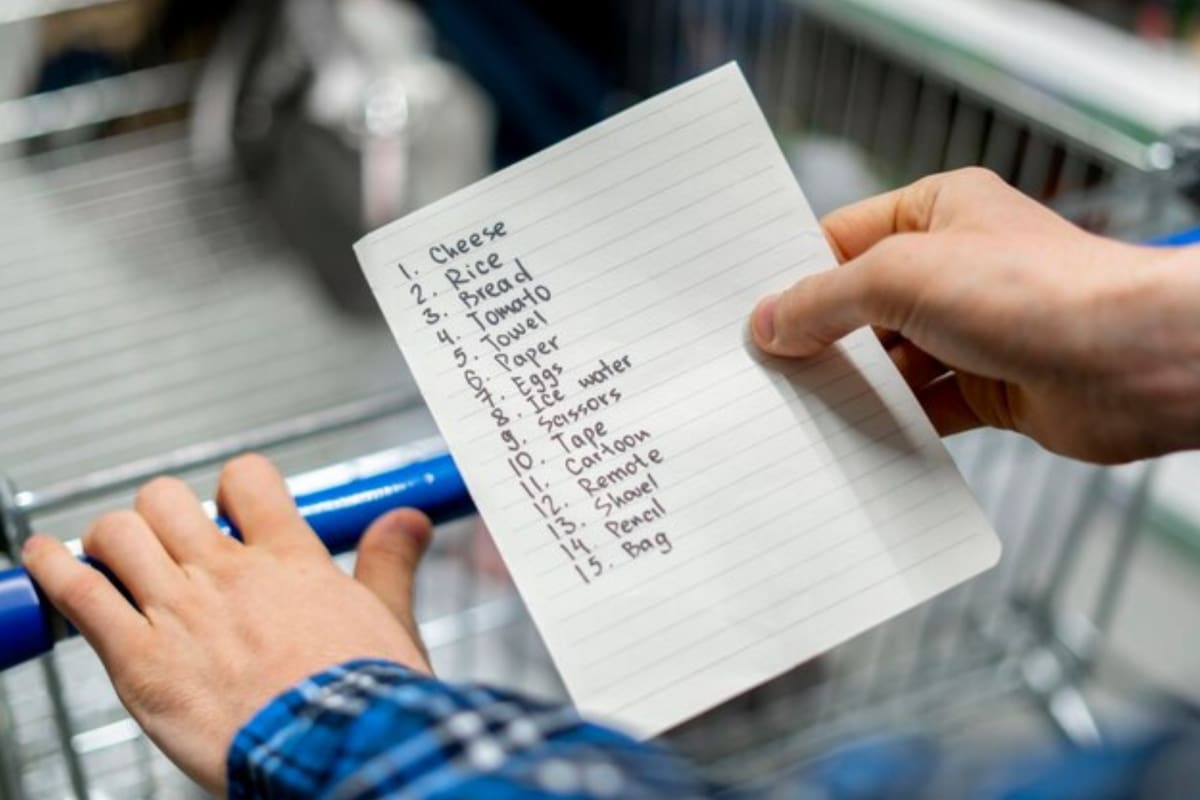 1. Cheese
2. Rice
3. Bread
4. Tomato
5. Towel
6. Paper
7. Eggs
8. Ice water
9. Scissors
10. Tape
11. Cartoon
12. Remote
13. Shovel
14. Pencil
15. Bag